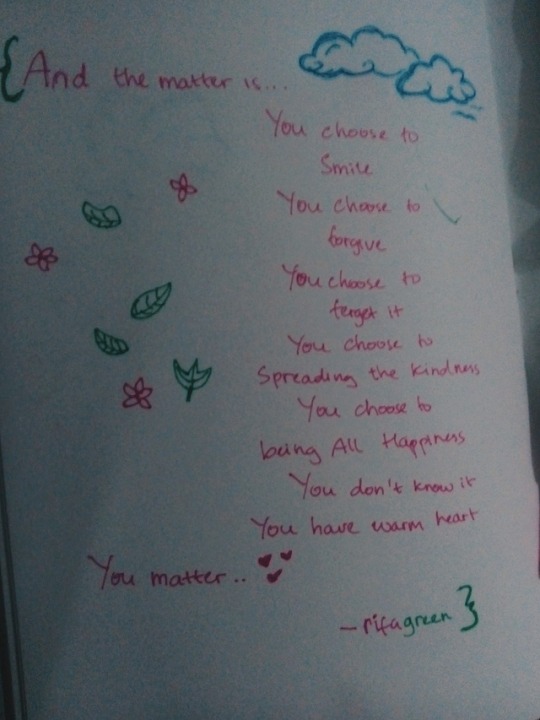 {And the matter is...
You choose to
Smile
You choose to
forgive
You choose to
forget it
You choose to
Spreading the kindness
You choose to
being All Happiness
You don't know it
You have warm heart
You matter..
—rifagreen}